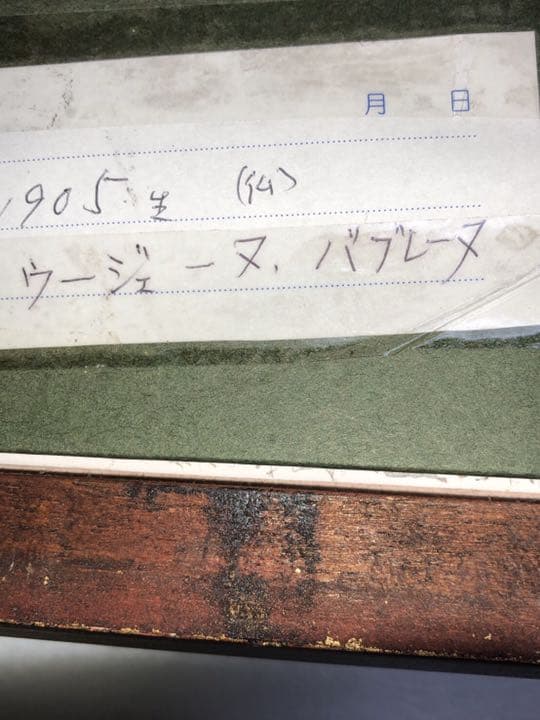 月 日
1905生 (仏)
ウージェーヌ、バブレーヌ